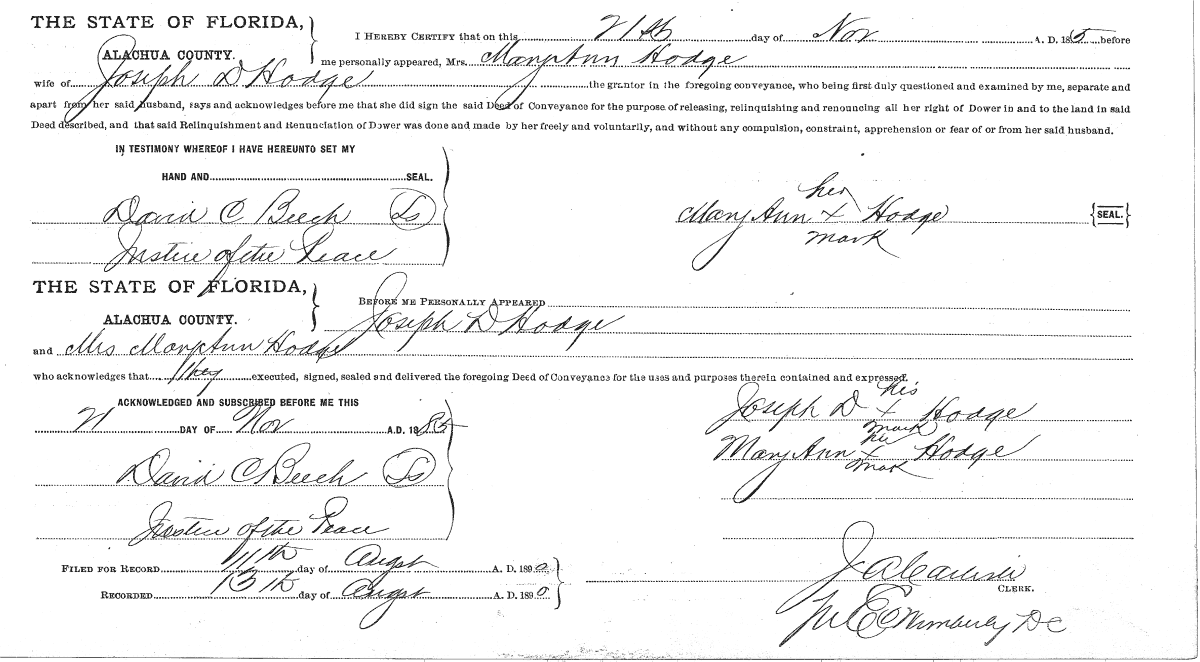 THE STATE OF FLORIDA,
ALACHUA COUNTY.
I HEREBY CERTIFY that on this 21th day of Nov A. D. 185 before
me personally appeared, Mrs. Mary Ann Hodge
wife of Joseph D Hodge the grantor in the foregoing conveyance, who being first duly questioned and examined by me, separate and
apart from her said husband, says and acknowledges before me that she did sign the said Deed of Conveyance for the purpose of releasing, relinquishing and renouncing all her right of Dower in and to the land in said
Deed described, and that said Relinquishment and Renunciation of Dower was done and made by her freely and voluntarily, and without any compulsion, constraint, apprehension or fear of or from her said husband.
IN TESTIMONY WHEREOF I HAVE HEREUNTO SET MY
HAND AND SEAL.
David C Beech Ls
Justice of the Peace
her
Mary Ann x Hodge {SEAL.}
mark
THE STATE OF FLORIDA,
ALACHUA COUNTY.
BEFORE ME PERSONALLY APPEARED
Joseph D Hodge
and Mrs Mary Ann Hodge
who acknowledges that they executed, signed, sealed and delivered the foregoing Deed of Conveyance for the uses and purposes therein contained and expressed.
ACKNOWLEDGED AND SUBSCRIBED BEFORE ME THIS
21 DAY OF Nov A.D. 1885
David C Beech Ls
Justice of the Peace
his
Joseph D x Hodge
mark
her
Mary Ann x Hodge
mark
FILED FOR RECORD 11th day of Augst A. D. 1890
RECORDED 13th day of Augst A. D. 1890
J A Carlisle
CLERK.
Wimberly DC